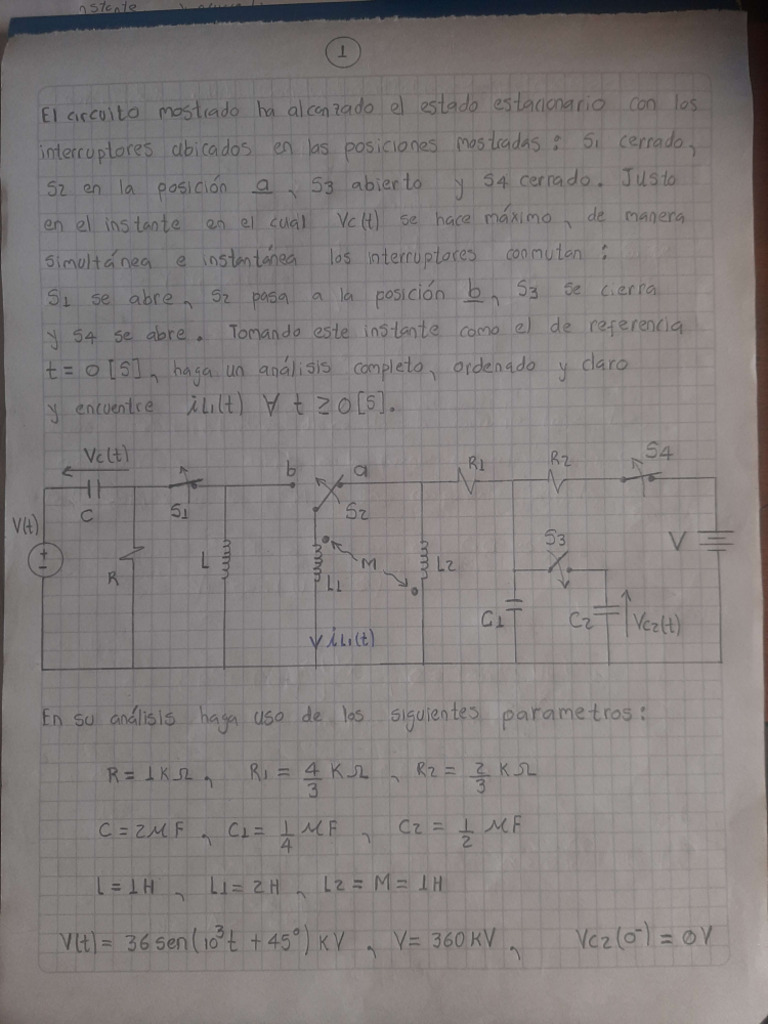 1
El circuito mostrado ha alcanzado el estado estacionario con los
interruptores ubicados en las posiciones mostradas : S1 cerrado,
S2 en la posición a, S3 abierto y S4 cerrado. Justo
en el instante en el cual Vc(t) se hace máximo, de manera
simultánea e instantánea los interruptores conmutan :
S1 se abre, S2 pasa a la posición b, S3 se cierra
y S4 se abre. Tomando este instante como el de referencia
t = 0 [S], haga un análisis completo, ordenado y claro
y encuentre iL1(t) ∀ t ≥ 0[S].
Vc(t)
C
S1
b
a
S2
R1
R2
S4
V(t)
+
-
R
L
L1
M
L2
S3
V
C1
C2
Vc2(t)
iL1(t)
En su análisis haga uso de los siguientes parametros :
R = 1KΩ, R1 = 4/3 KΩ, R2 = 2/3 KΩ
C = 2MF, C1 = 1/4 MF, C2 = 1/2 MF
L = 1H, L1 = 2H, L2 = M = 1H
V(t) = 36 sen(10³t + 45°) KV, V = 360 KV, Vc2(0⁻) = 0V